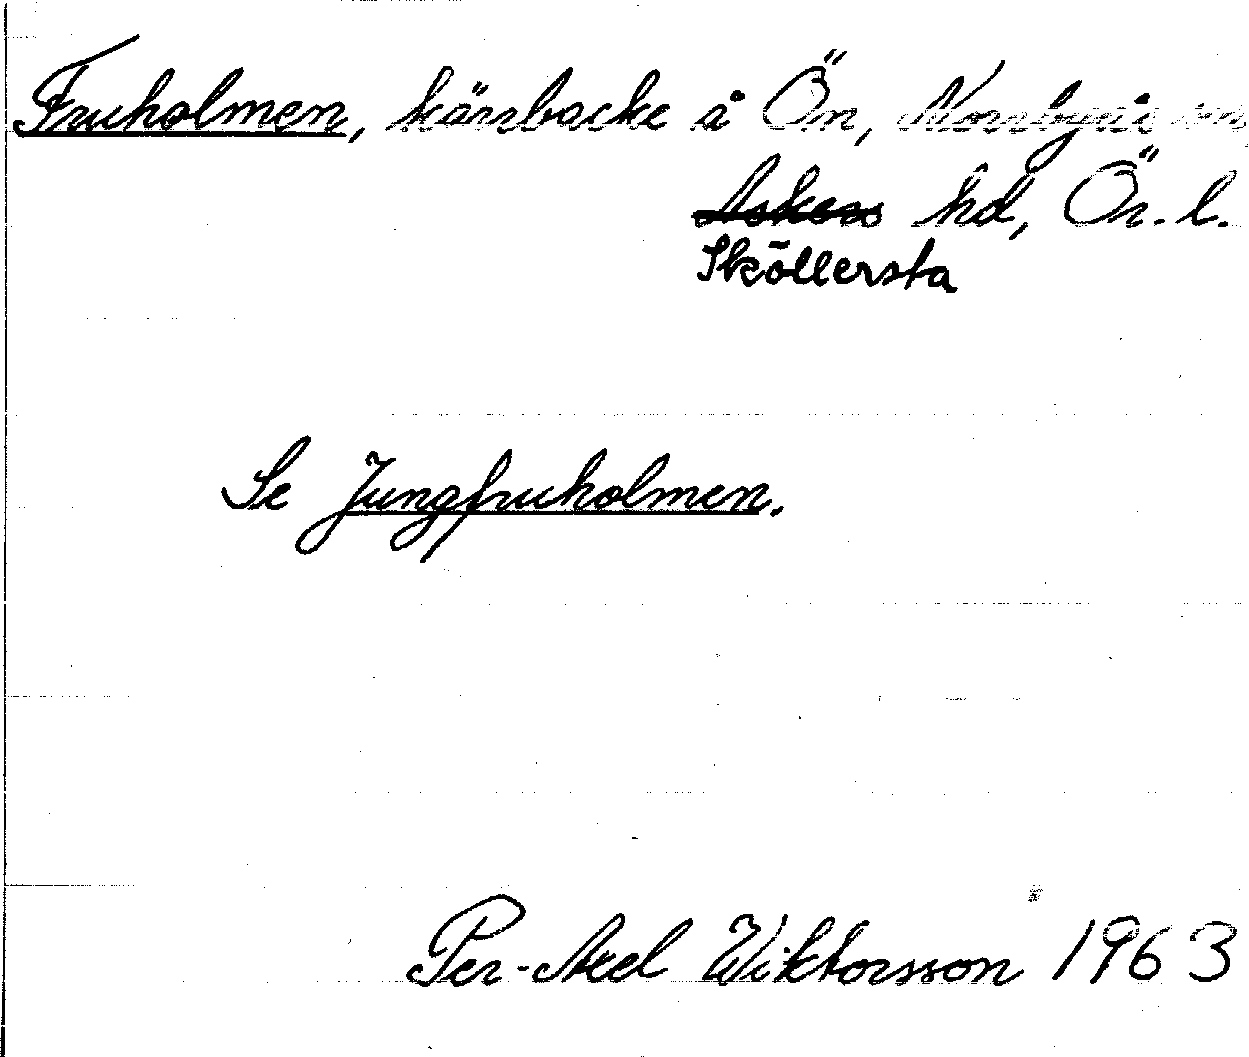 Fruholmen, kärrbacke å Ön, Norrbyås sn,
Askers hd, Ör. l.
Sköllersta
Se Jungfruholmen.
Per-Axel Wiktorsson 1963